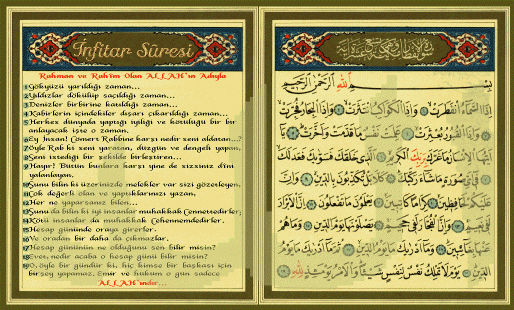 İnfitar Sûresi
Rahman ve Rahîm Olan ALLAH'ın Adıyla
1 Gökyüzü yarıldığı zaman...
2 Yıldızlar dökülüp saçıldığı zaman...
3 Denizler birbirine katıldığı zaman...
4 Kabirlerin içindekiler dışarı çıkarıldığı zaman...
5 Herkes dünyada yaptığı iyiliği ve kötülüğü bir bir
anlayacak işte o zaman.
6 Ey İnsan! Cömert Rabbine karşı nedir seni aldatan...?
7 Öyle Rab ki seni yaratan, düzgün ve dengeli yapan,
8 Seni istediği bir şekilde birleştiren...
9 Hayır! Bütün bunlara karşı yine de sizsiniz dîni
yalanlayan.
10 Şunu bilin ki üzerinizde melekler var sizi gözetleyen,
11 Çok değerli olan ve yaptıklarınızı yazan,
12 Her ne yaparsanız bilen...
13 Şunu da bilin ki iyi insanlar muhakkak Cennettedirler;
14 Kötü insanlar da muhakkak Cehennemdedirler.
15 Hesap gününde oraya girerler.
16 Ve oradan bir daha da çıkmazlar.
17 Hesap gününün ne olduğunu sen bilir misin?
18 Evet, nedir acaba o hesap günü bilir misin?
19 O, öyle bir gündür ki, hiç kimse bir başkası için
birşey yapamaz. Emir ve hüküm o gün sadece
ALLAH'ındır...
بسم الله الرحمن الرحيم
اِذَا السَّمَاءُ انْفَطَرَتْ وَاِذَا الْكَوَاكِبُ انْتَثَرَتْ وَاِذَا الْبِحَارُ فُجِّرَتْ
وَاِذَا الْقُبُورُ بُعْثِرَتْ عَلِمَتْ نَفْسٌ مَا قَدَّمَتْ وَاَخَّرَتْ يَا
اَيُّهَا الْاِنْسَانُ مَا غَرَّكَ بِرَبِّكَ الْكَرِيمِ الَّذِي خَلَقَكَ فَسَوّٰيكَ فَعَدَلَكَ
فِي اَيِّ صُورَةٍ مَا شَاءَ رَكَّبَكَ كَلَّا بَلْ تُكَذِّبُونَ بِالدِّينِ وَاِنَّ
عَلَيْكُمْ لَحَافِظِينَ كِرَامًا كَاتِبِينَ يَعْلَمُونَ مَا تَفْعَلُونَ اِنَّ الْاَبْرَارَ
لَفِي نَعِيمٍ وَاِنَّ الْفُجَّارَ لَفِي جَحِيمٍ يَصْلَوْنَهَا يَوْمَ الدِّينِ وَمَا هُمْ
عَنْهَا بِغَائِبِينَ وَمَا اَدْرٰيكَ مَا يَوْمُ الدِّينِ ثُمَّ مَا اَدْرٰيكَ مَا يَوْمُ
الدِّينِ يَوْمَ لَا تَمْلِكُ نَفْسٌ لِنَفْسٍ شَيْئًا وَالْاَمْرُ يَوْمَئِذٍ لِلّٰهِ